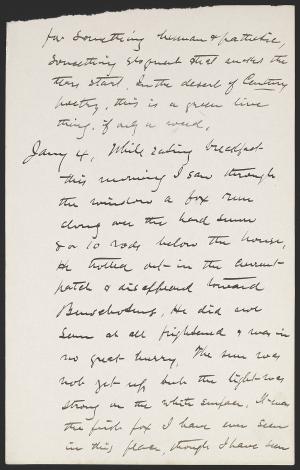 for something human & pathetic,
something eloquent that makes the
tears start. In the desert of Century
poetry, this is a green live
thing, if only a weed.
Jany 4, While eating breakfast
this morning I saw through
the window a fox run
along over the hard snow
8 or 10 rods below the house,
He trotted out in the currant-
patch & disappeared toward
He did not
seem at all frightened & was in
no great hurry. The sun was
not yet up, but the light was
strong on the white surface. It was
the first fox I have ever seen
in this place, though I have seen